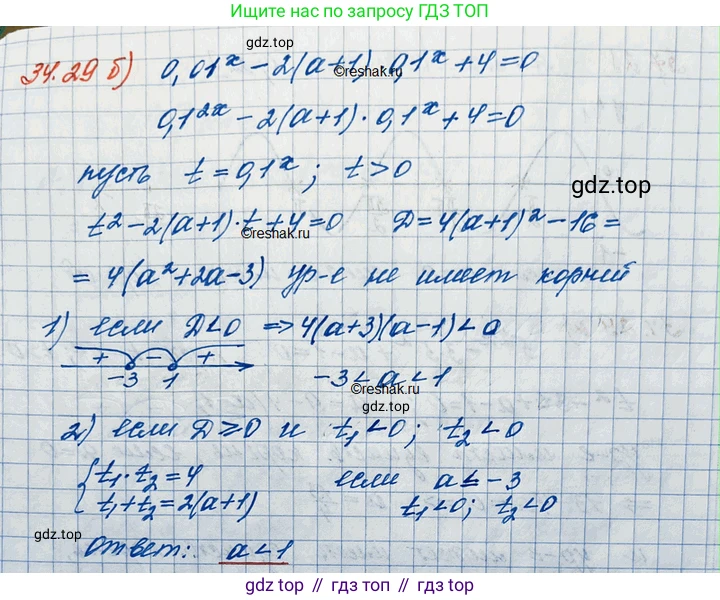 Ищите нас по запросу ГДЗ ТОП
gdz.top
34.29 б) 0,01ˣ - 2(a+1)·0,1ˣ + 4 = 0
©reshak.ru
0,1²ˣ - 2(a+1)·0,1ˣ + 4 = 0
пусть t = 0,1ˣ; t > 0
gdz.top
t² - 2(a+1)·t + 4 = 0 D = 4(a+1)² - 16 =
©reshak.ru
= 4(a² + 2a - 3) ур-е не имеет корней
1) если D < 0 ⇒ 4(a+3)(a-1) < 0
+ - +
-3 1 -3 < a < 1
©reshak.ru
gdz.top
2) если D ≥ 0 и t₁ < 0; t₂ < 0
{ t₁·t₂ = 4 если a ≤ -3
t₁ + t₂ = 2(a+1) t₁ < 0; t₂ < 0
©reshak.ru
gdz.top
Ответ: a < 1
gdz.top // гдз топ // гдз.топ